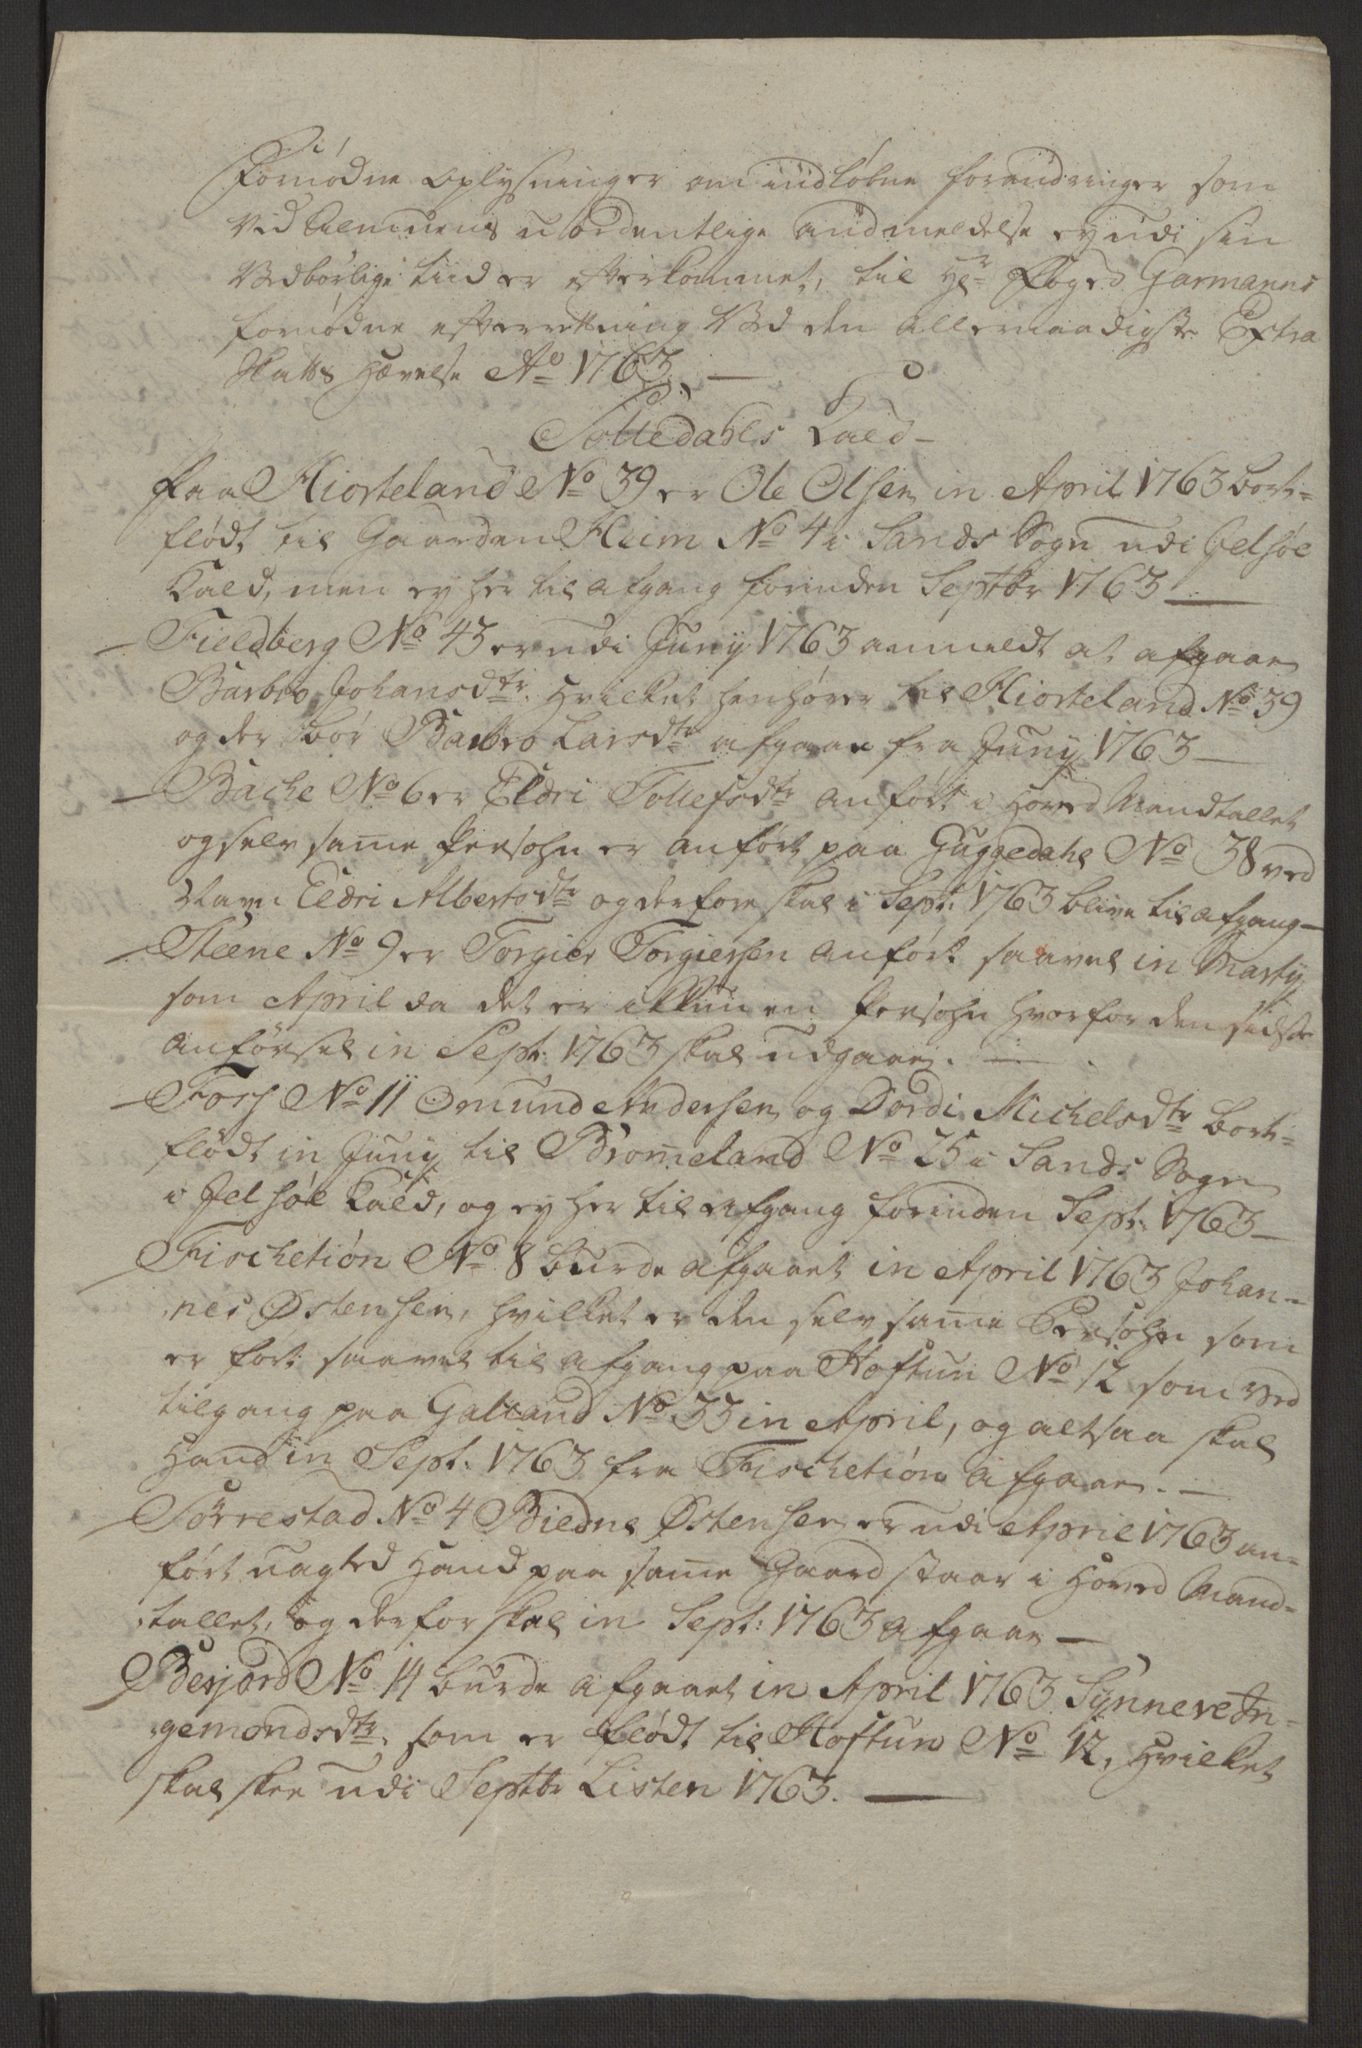 Fornødne Oplysninger om indløbne forandringer som
Ved Almuens uordentlige andmeldelse ey udi sin
Vedbørlige tiid er efterkommet, til Hr. Foged Garmanns
fornødne efterretning Ved den allernaadigste Extra
Skatts Hævelse Ao 1763. —
Sollédahls Kald —
Paa Hiorteland No 39 er Ole Olsen in April 1763 bort=
flødt til Gaarden Heim No 4 i Sands Sogn udi Jelsøe
Kald, men ey her til afgang forinden Septbr 1763 —
— Fieldberg No 43 er udi Juny 1763 anmeldt at afgaae
Barbro Johansdtr. Hvilket henhører til Hiorteland No 39
og der bør Barbro Larsdtr afgaae fra Juny 1763 —
— Bache No 6 er Eldri Tollefsdtr anført i Hoved Mandtallet
og selv same Persohn er anført paa Guggedahl No 38 ved
Navn Eldri Albertsdtr og derfore skal i Sept: 1763 blive til afgang —
— Steene No 9 er Torgier Torgiersen anført saavel in Marty
som April da det er ikkun en Persohn hvorfor den sidste
anførsel in Sept: 1763 skal udgaae. —
— Fors No 11 Omund Andersen og Dordi Michelsdtr bort=
flødt in Juny til Bromeland No 25 i Sands Sogn
i Jelsøe Kald, og ey her til afgang forinden Sept: 1763 —
— Fischetiøn No 8 burde afgaaet in April 1763 Johan=
nes Østensen, hvilket er den selv same Persohn som
er ført saavel til afgang paa Hoftun No 12 som ved
tilgang paa Galtand No 33 in April, og altsaa skal
Hand in Sept: 1763 fra Fischetiøn afgaae. —
— Sørrestad No 4 Biedne Østensen er udi April 1763 an=
ført uagted Hand paa same Gaard staar i Hoved Mand=
tallet, og derfor skal in Sept: 1763 afgaae —
— Øverjord No 14 burde afgaaet in April 1763 Synneve In=
gemondsdtr. som er flødt til Hoftun No 12, Hvilket
skal skee udi Septbr Listen 1763. —